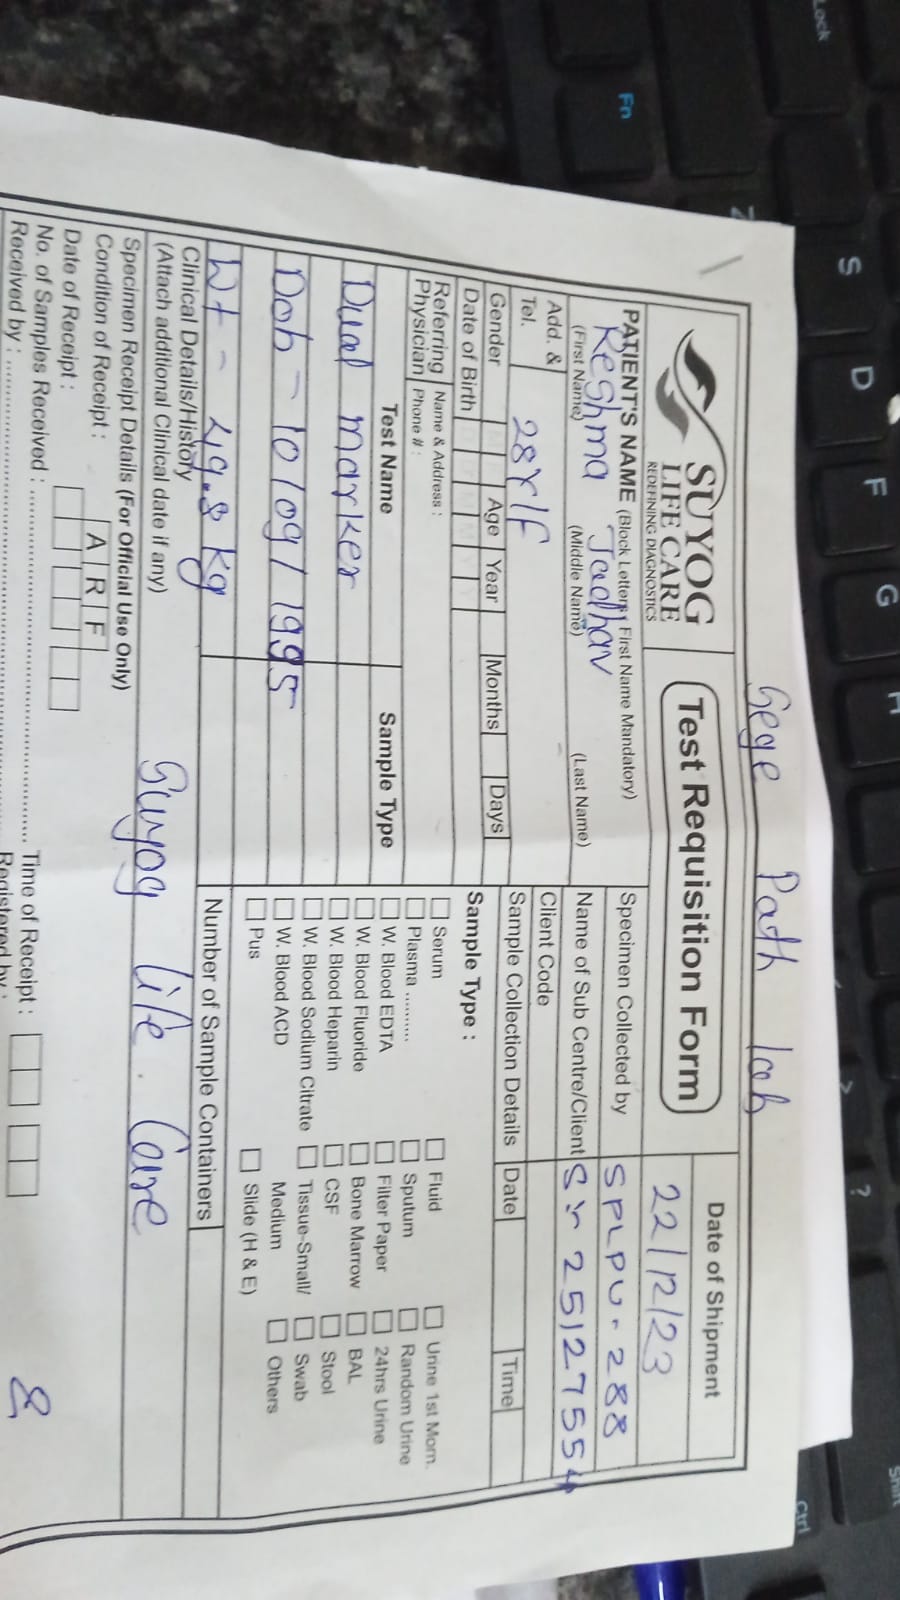 Gege Path lab
SUYOG
LIFE CARE
REDEFINING DIAGNOSTICS
Test Requisition Form
Date of Shipment
22/12/23
PATIENT'S NAME (Block Letters, First Name Mandatory)
Reshma Jadhav
(First Name) (Middle Name) (Last Name)
Add. &
Tel.
28Y/F
Gender
Age Year Months Days
Date of Birth
Referring
Physician
Name & Address :
Phone # :
Specimen Collected by SPLPU-288
Name of Sub Centre/Client Sr 25127554
Client Code
Sample Collection Details Date Time
Test Name Sample Type
Dual marker
Dob - 10/09/1995
Wt - 49.8 kg
Sample Type :
Serum Fluid Urine 1st Morn.
Plasma .......... Sputum Random Urine
W. Blood EDTA Filter Paper 24hrs Urine
W. Blood Fluoride Bone Marrow BAL
W. Blood Heparin CSF Stool
W. Blood Sodium Citrate Tissue-Small/ Swab
W. Blood ACD Medium Others
Pus Slide (H & E)
Number of Sample Containers
Clinical Details/History
(Attach additional Clinical date if any)
Suyog life. Care
Specimen Receipt Details (For Official Use Only)
Condition of Receipt : A R F
Date of Receipt : Time of Receipt :
No. of Samples Received :
Received by : Registered by :
Lock
Fn
Z
S
D
F
G
H
?
Shift
Ctrl